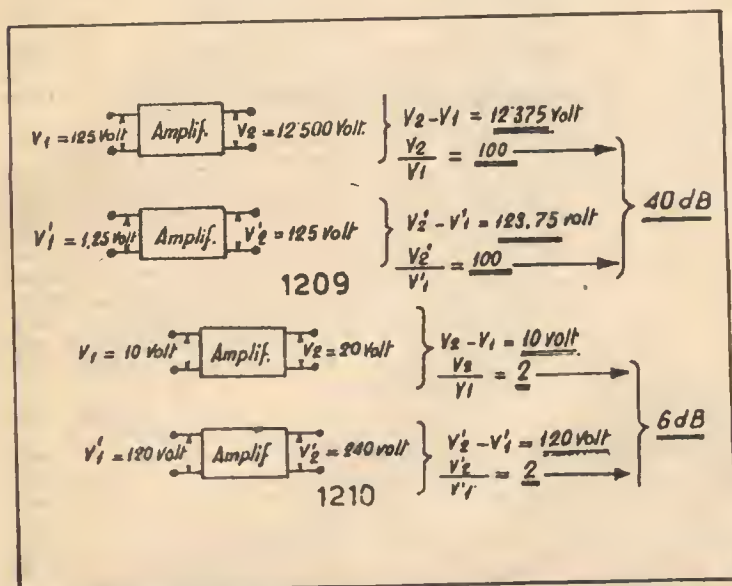 V1 = 125 Volt Amplif. V2 = 12'500 Volt. V2 – V1 = 12'375 Volt
V2/V1 = 100
V'1 = 1,25 Volt Amplif. V'2 = 125 Volt V2' – V'1 = 123,75 volt
V2'/V'1 = 100
40 dB
1209
V1 = 10 Volt Amplif. V2 = 20 Volt V2 – V1 = 10 volt
V2/V1 = 2
V'1 = 120 Volt Amplif V'2 = 240 Volt V'2 – V'1 = 120 Volt
V'2/V'1 = 2
6 dB
1210